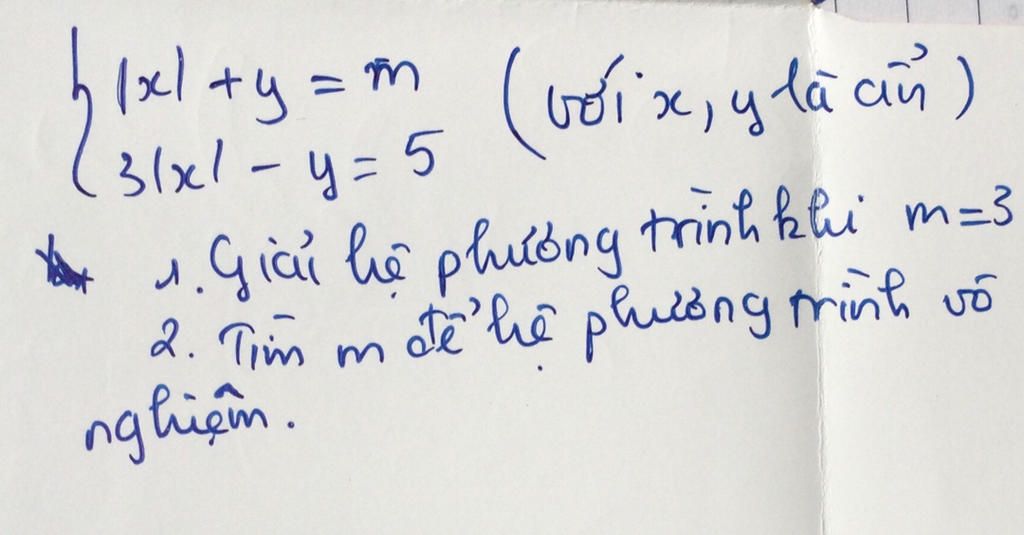 { |x| + y = m (với x, y là ẩn)
3|x| - y = 5
1. Giải hệ phương trình khi m = 3
2. Tìm m để hệ phương trình vô
nghiệm.